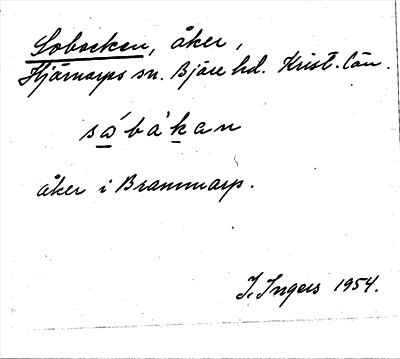 Sobacken, åker,
Hjärnarps sn. Bjäre hd. Krist. län.
sɷ́bàkan
åker i Brammarp.
I. Ingers 1954.